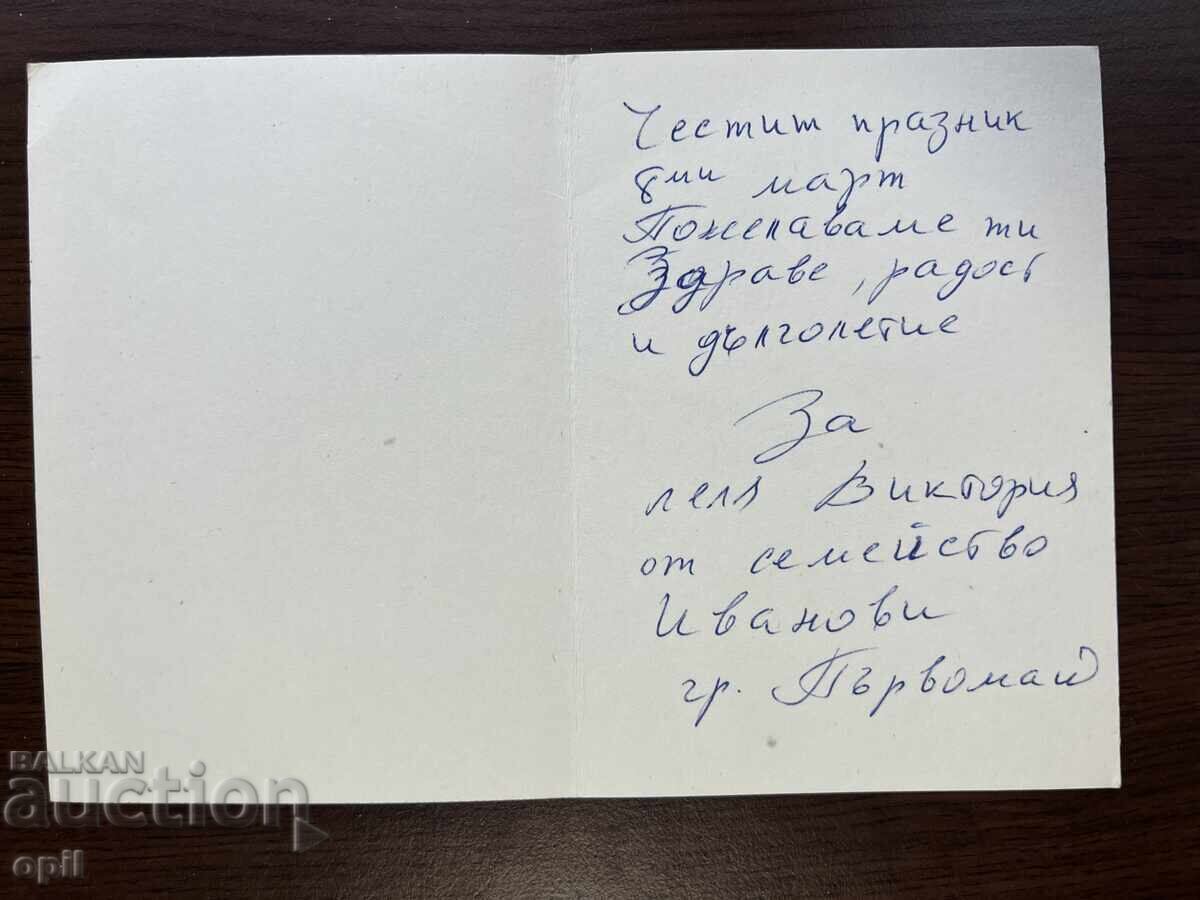 Честит празник
8ми март
Пожелаваме ти
Здраве, радост
и дълголетие
За
леля Виктория
от семейство
Иванови
гр. Първомай
BALKAN
auction
opil